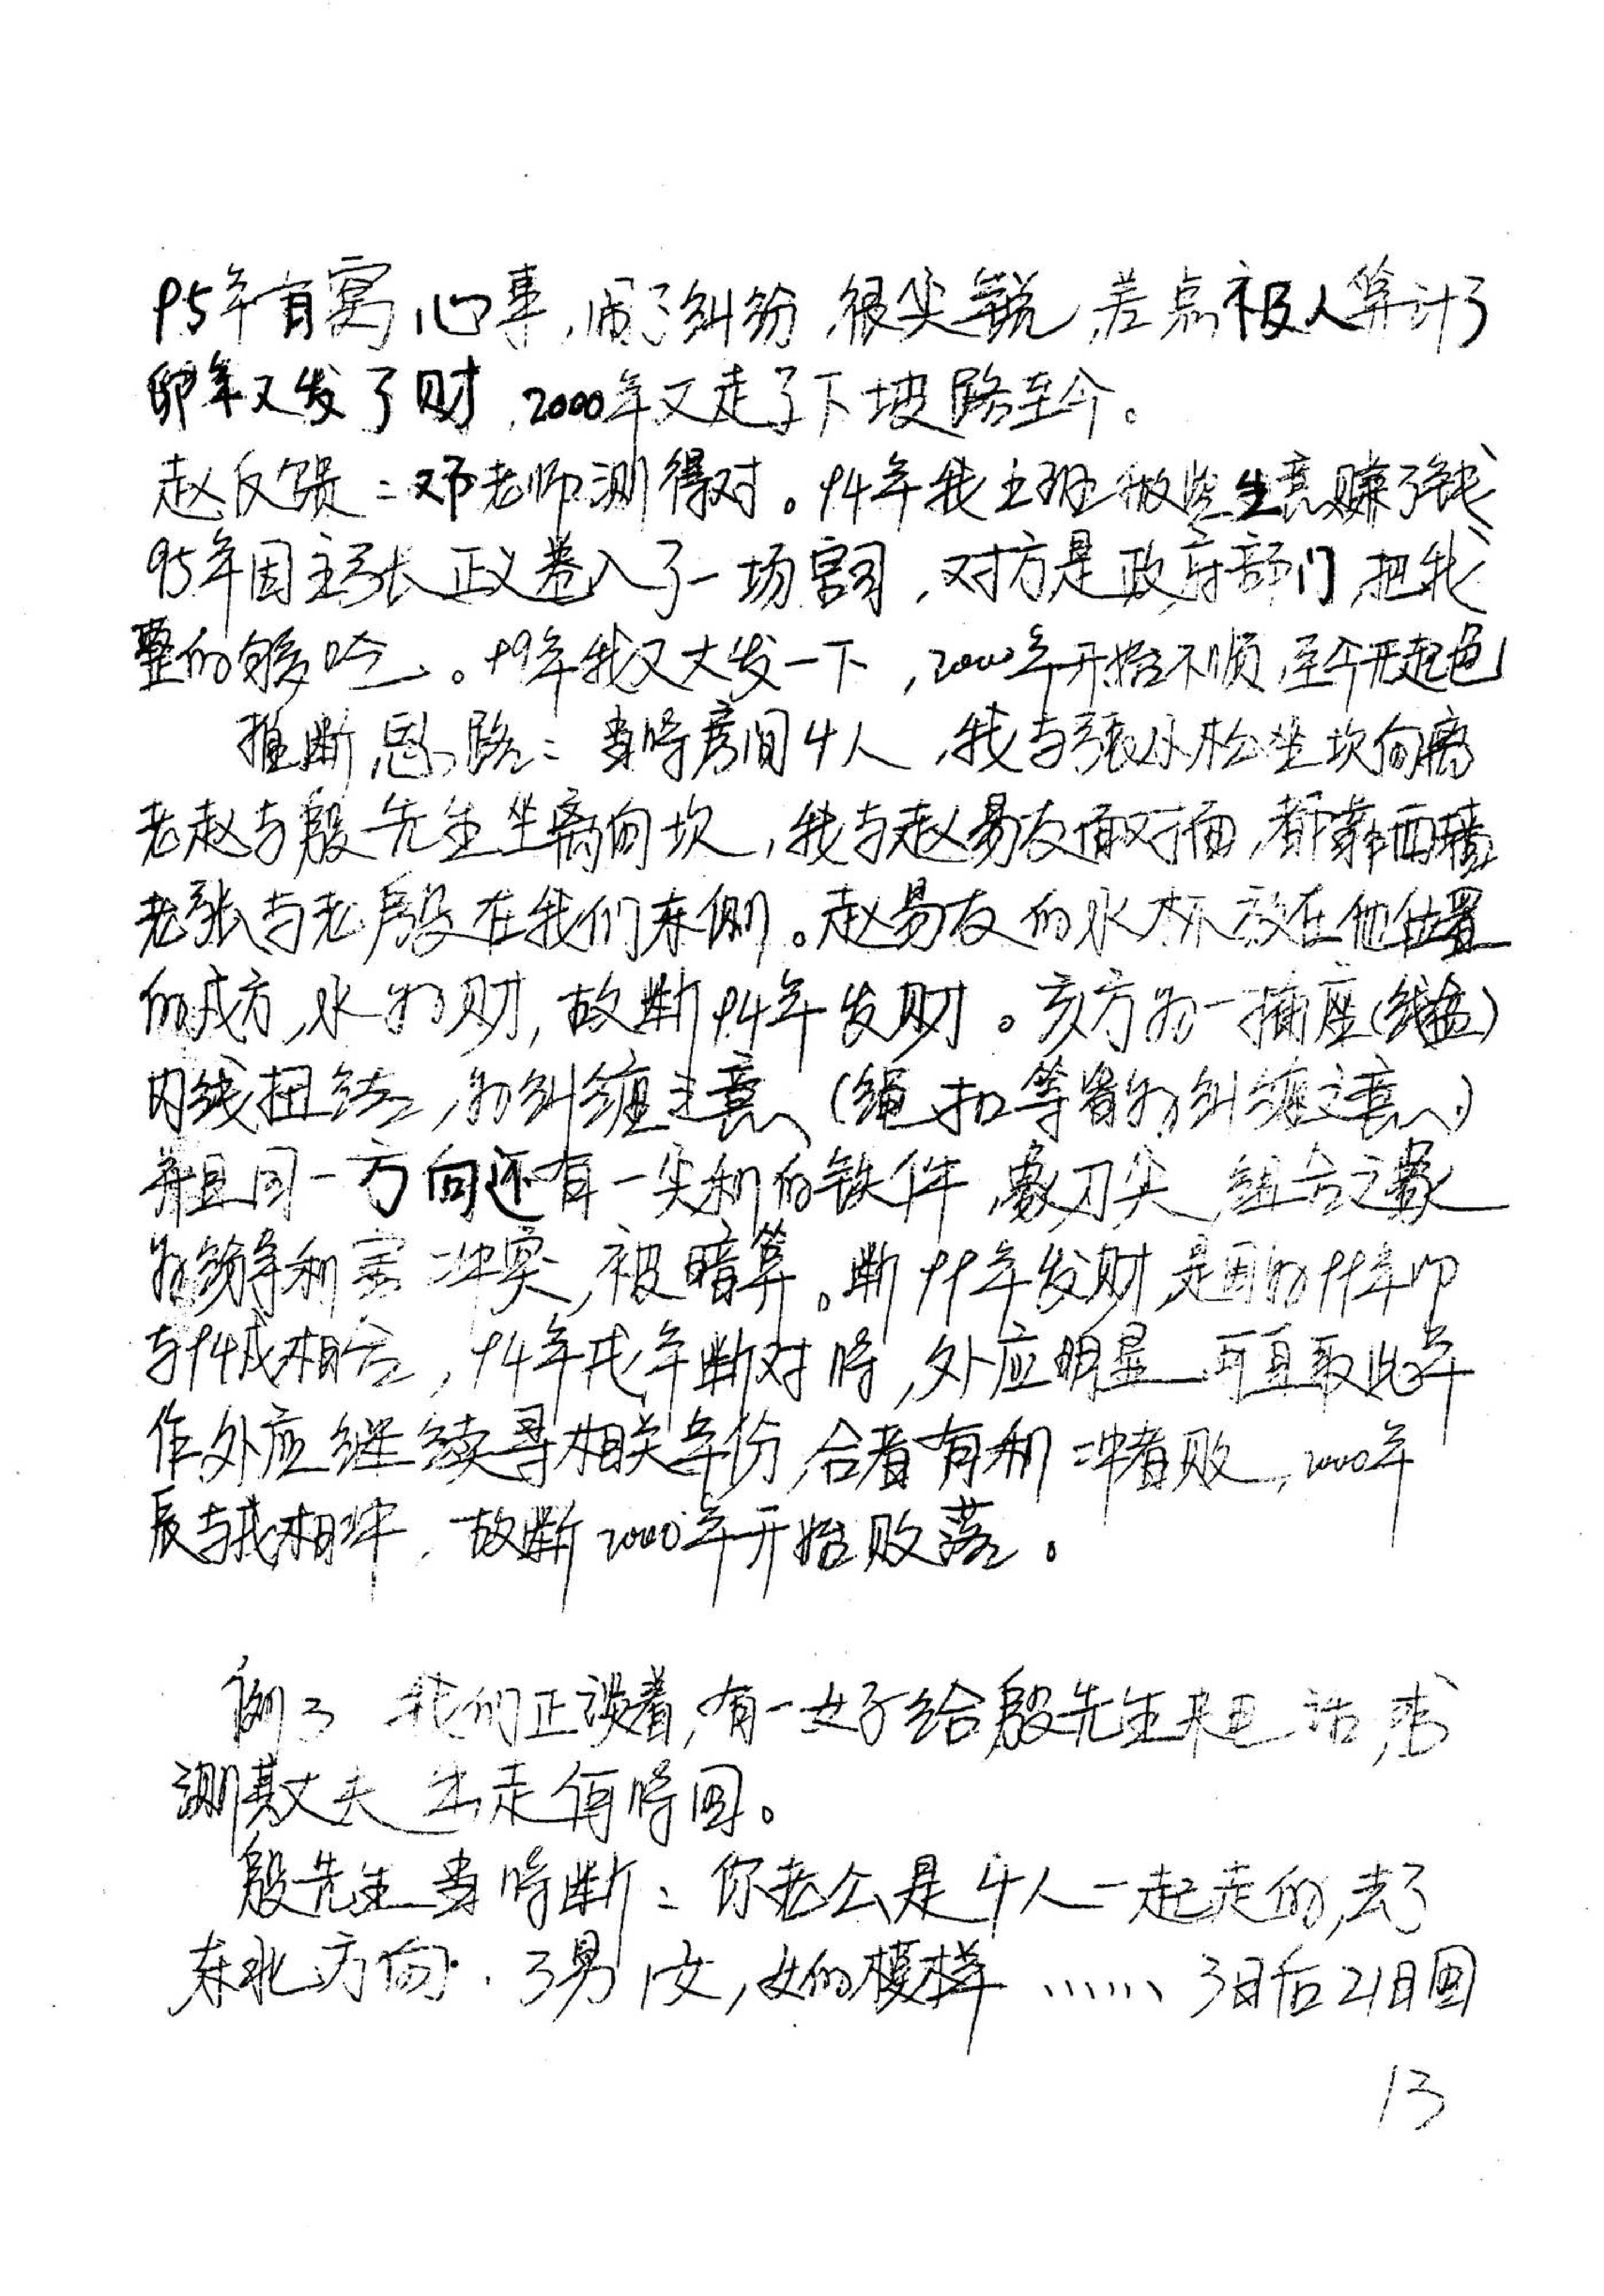 95年有窝心事,闹了纠纷,很尖锐,差点被人算计了
卯年又发了财,2000年又走了下坡路至今。
赵反馈:邓老师测得对。94年我上班做些生意赚了钱
95年因主张正义卷入了一场官司,对方是政府部门,把我
整的够呛。99年我又大发一下,2000年开始不顺,至今无起色
推断思路:当时房间4人,我与张小松坐坎向离
老赵与殷先生坐离向坎,我与赵易友面对面,都靠西墙
老张与老殷在我们东侧。赵易友的水杯放在他位置
的戌方,水为财,故断94年发财。亥方为一插座(线盒)
内线扭结,为纠缠之意(绳扣等皆为纠缠之意)
并且同一方向还有一尖利的铁件,象刀尖,组合之象
为纷争利害冲突,被暗算。断99年发财,是因为99年卯
与94戌相合,94年戌年断对时,外应明显,可直取此年
作外应继续寻相关年份,合者有利冲者败,2000年
辰与戌相冲,故断2000年开始败落。
例3 我们正谈着,有一女子给殷先生来电话,求
测其丈夫出走何时回。
殷先生当时断:你老公是4人一起走的,去了
东北方向.3男1女,女的模样……3日后21日回
13